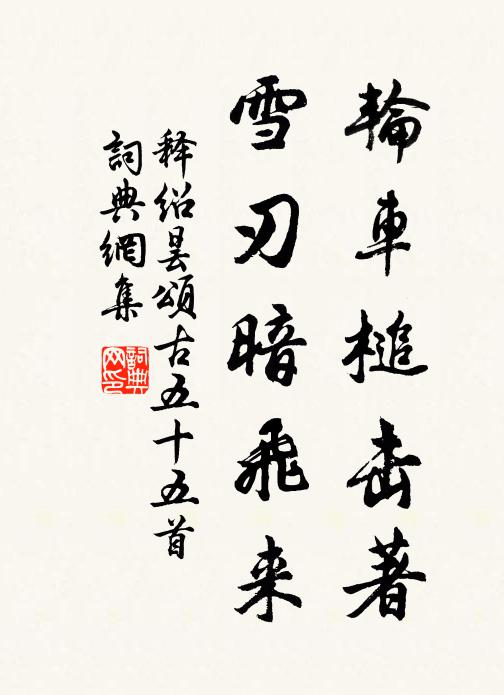 輪車槌击著
雪刃暗飛来
释绍昙頌古五十五首
詞典網集
詞典网印